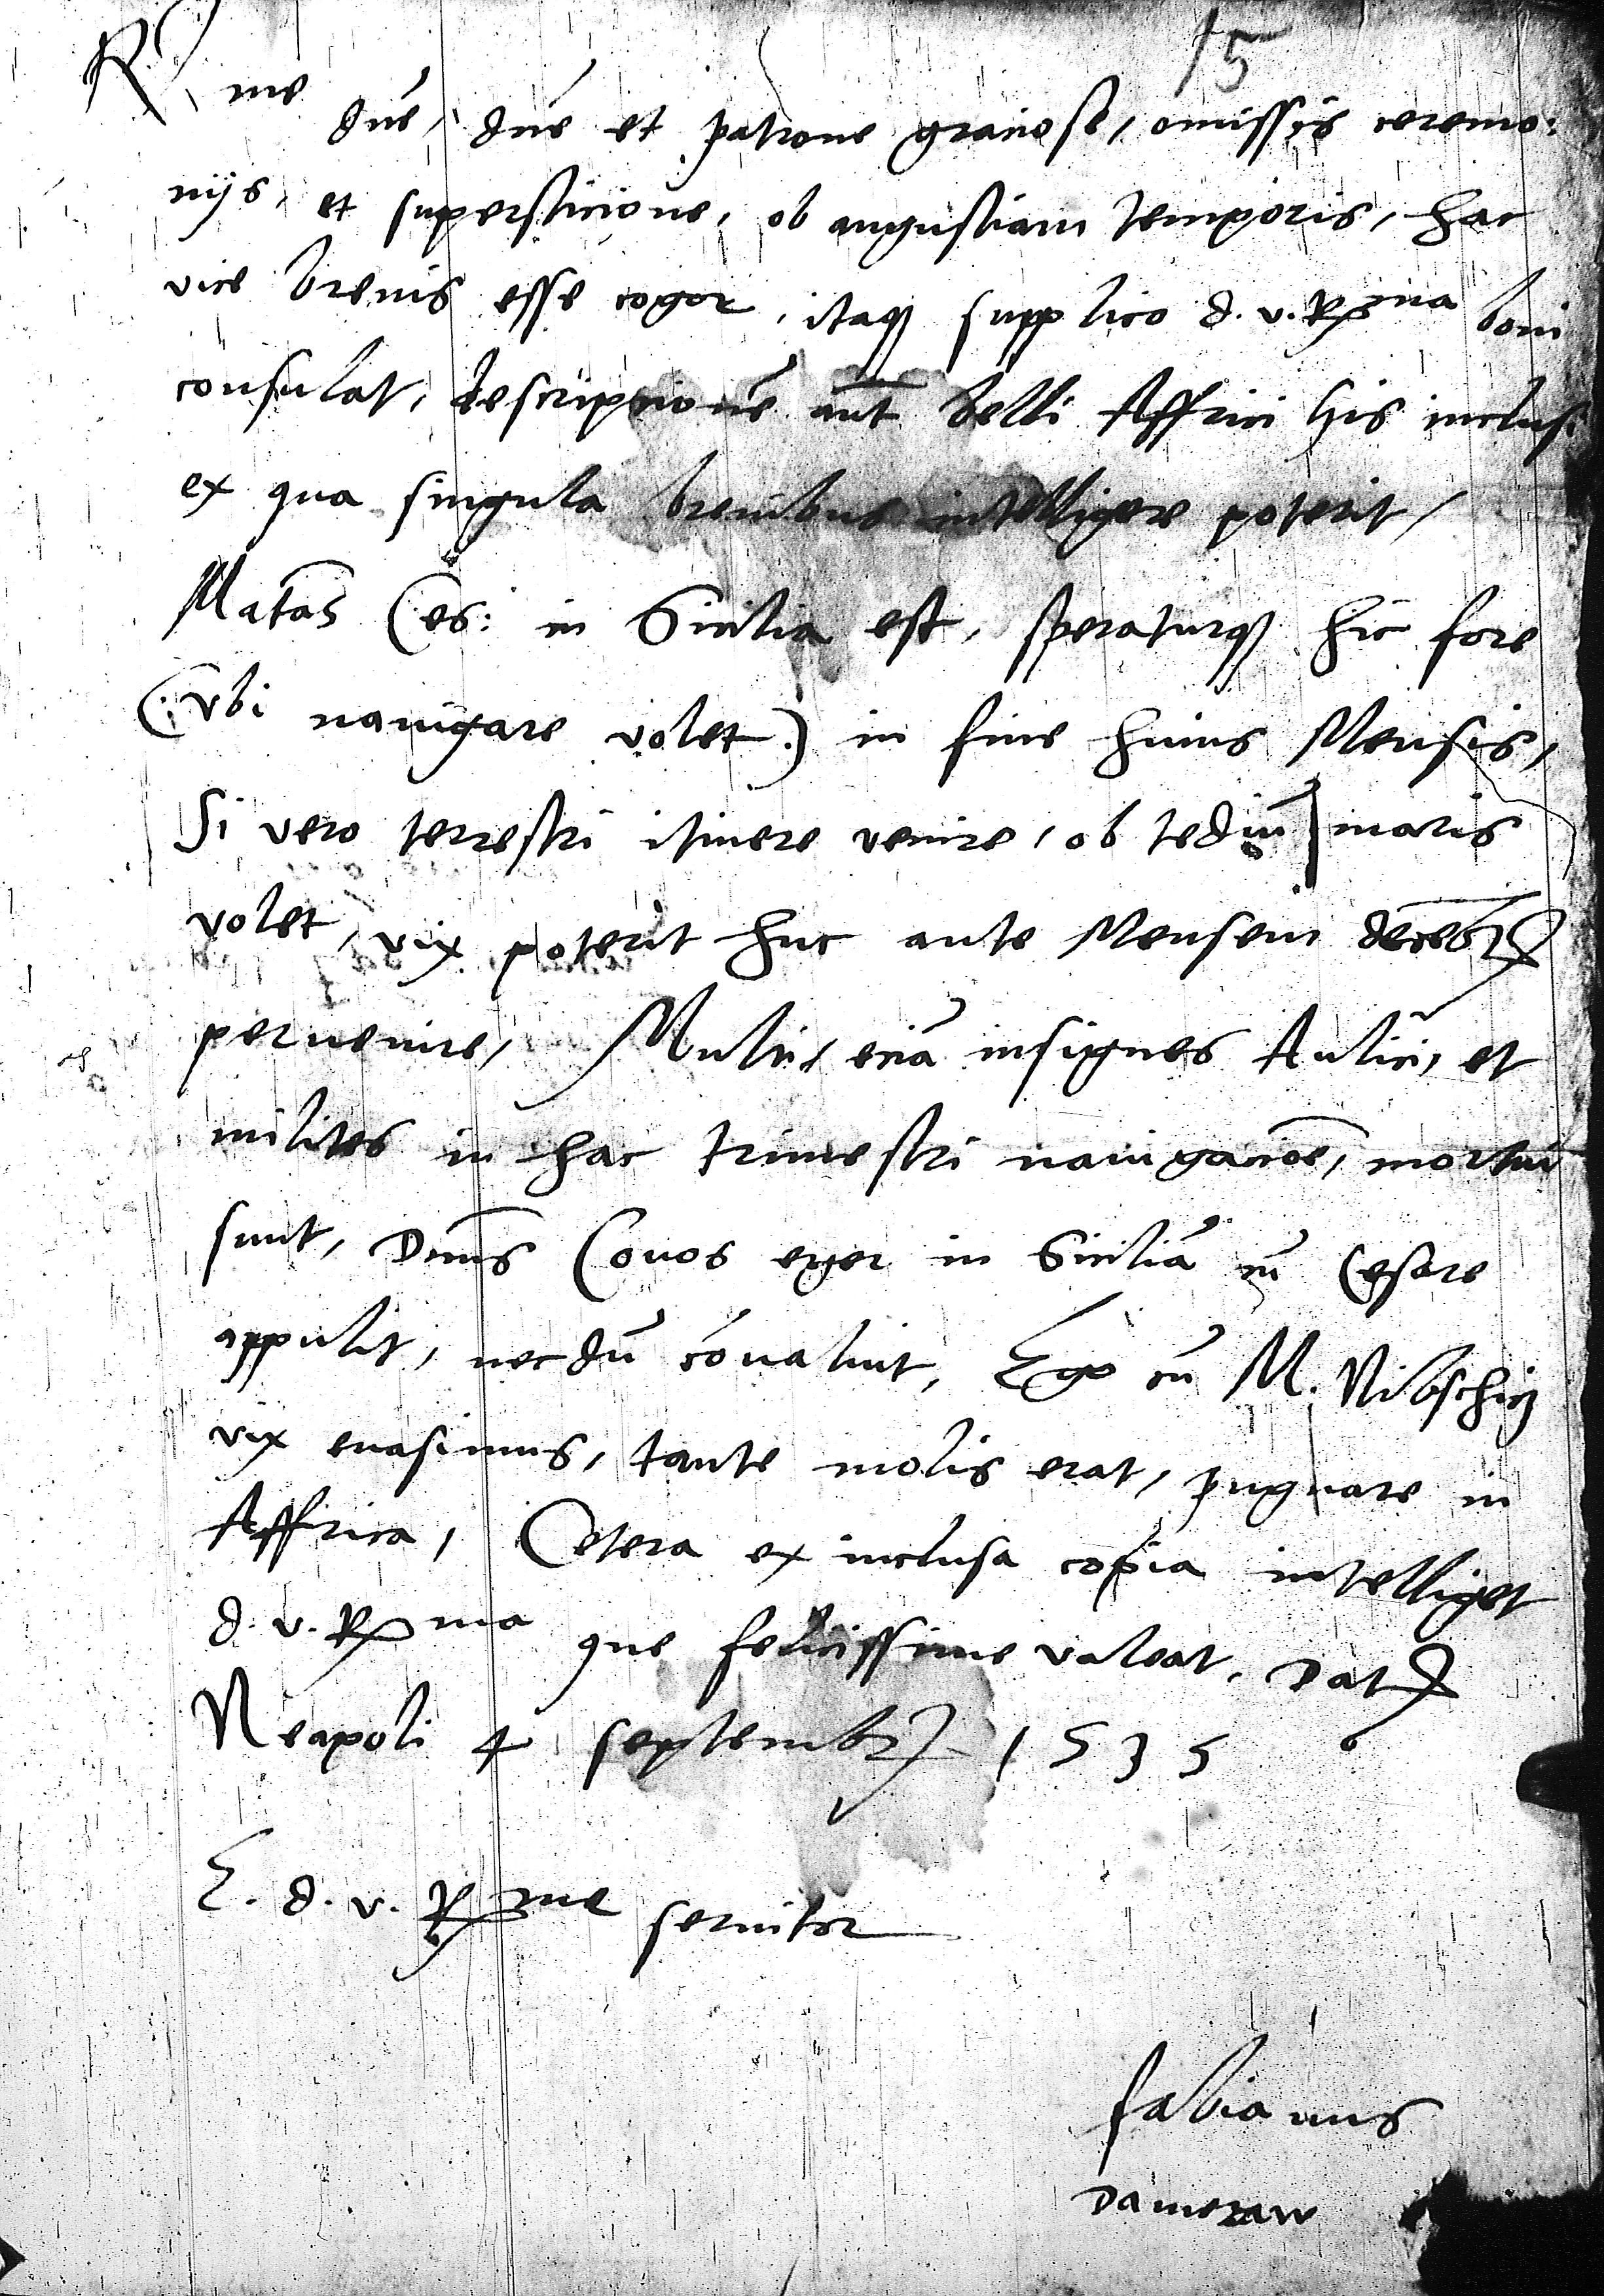 15
R me
dne, dne et patrone graciose, omissis ceremo:
nijs, et supersticione, ob angustiam temporis, hac
vice brevis esse cogor, itaq supplico d. v. R ma boni
consulat, descripcionē aūt belli Affrici his inclusi
ex qua singula brevibus intelligere poterit,
Matas Ces: in Sicilia est, speraturq hic fore
(: vbi navigare volet :) in fine huius Mensis,
Si vero terrestri itinere venire, ob tediū maris
volet, vix poterit huc ante Mensem decēbr
pervenire, Multi, eciā insignes Aulici, et
milites in hac trimestri navigacioē, mortui
sunt, Dnus Covos eger in Siciliā cū Cesare
appulit, necdū cōvaluit, Ego cū M. Nibschicz
vix evasimus, tante molis erat, pugnare in
Affrica, Cetera ex inclusa copia intelliget
d. v. R ma que felicissime valeat, Dat
Neapoli 4 septembr 1535
E. d. v. R me servitor
fabianus
Dameraw